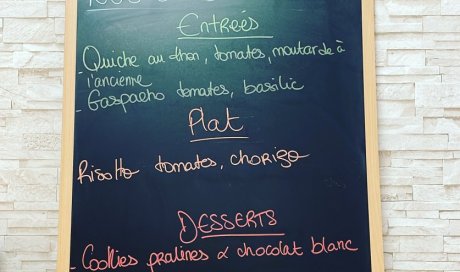 Entrées
- Quiche au thon, tomates, moutarde à
l'ancienne
- Gaspacho tomates, basilic
Plat
Risotto tomates, chorizo
DESSERTS
- Cookies pralines & chocolat blanc